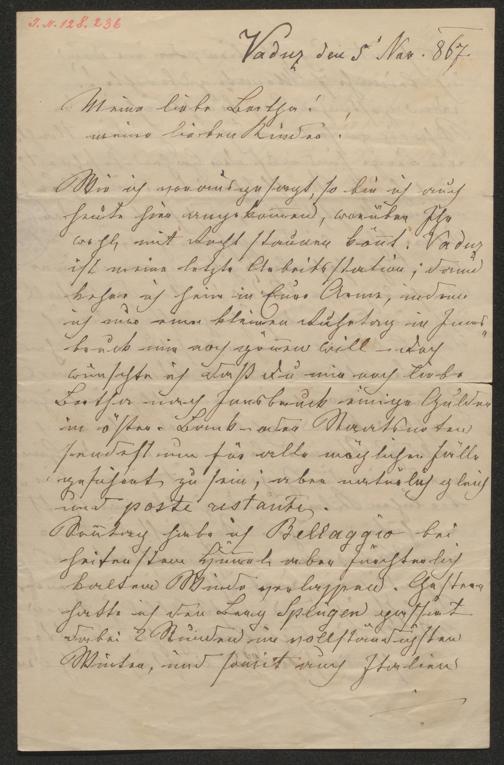 I.N. 128.236
Vaduz den 5' Nov. 867.
Meine liebe Bertha!
meine lieben Kinder!
Wie ich vorausgesagt, so bin ich auch
heute hier angekommen, worüber Ihr
wohl mit Recht staunen könnt. Vaduz
ist meine letzte Arbeitsstation; dann
kehre ich heim in Eure Arme, indem
ich nur einen kleinen Ruhetag in Inns-
bruck mir noch gönnen will – doch
wünschte ich daß du mir noch liebe
Bertha nach Innsbruck einige Gulden
in österr. Bank- oder Staatsnoten
sendest um für alle möglichen Fälle
gesichert zu sein; aber natürlich gleich
und poste restante.
Sonntag habe ich Bellaggio bei
heiterstem Himmel aber fürchterlich
kaltem Winde verlassen. Gestern
hatte ich den Berg Splügen passirt
dabei 2 Stunden im vollständigsten
Winter, und somit auch Italien